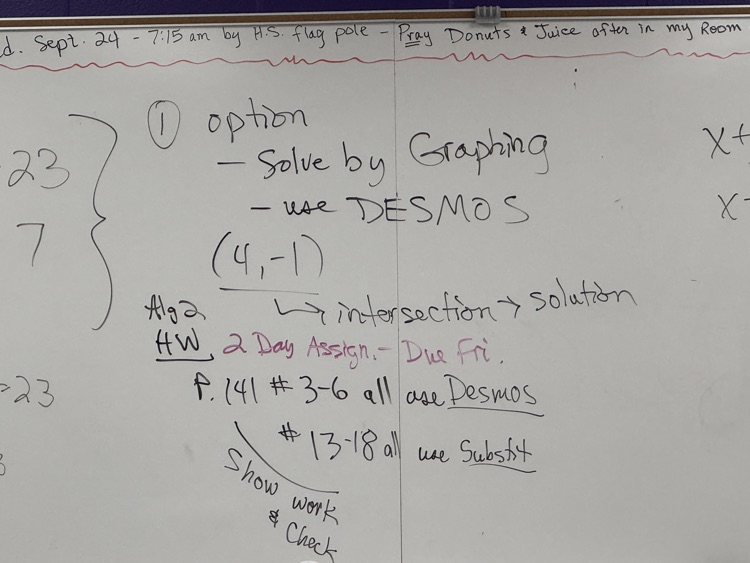 d. Sept. 24 - 7:15 am by H.S. flag pole - Pray Donuts & Juice after in my Room
23
7
① option
- Solve by Graphing
- use DESMOS
(4, -1)
↳ intersection → solution
x+
x-
Alg 2
HW 2 Day Assign. - Due Fri.
P. 141 # 3-6 all use Desmos
# 13-18 all use Substit
Show work
& Check
=23
3